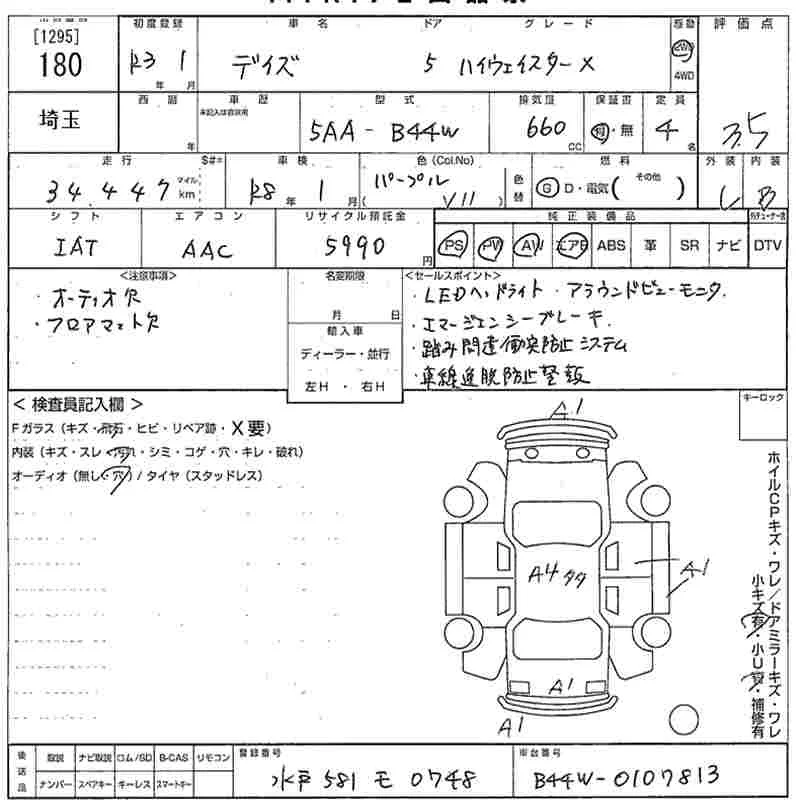 [1295]
180
埼玉
初度登録
R3 年 1 月
車名
デイズ
ドア
5
グレード
ハイウェイスターX
駆動
2WD
4WD
評価点
3.5
西暦
年
車歴
未記入は自家用
型式
5AA - B44W
排気量
660 cc
保証書
有・無
定員
4 名
走行
34,447
マイル
km
$#=
車検
R8 年 1 月
色 (Col.No)
パープル
( V11 )
色替
燃料
G D・電気 ( その他 )
外装
C
内装
B
シフト
IAT
エアコン
AAC
リサイクル預託金
5990 円
純正装備品
PS PW AW エアB ABS 革 SR ナビ DTV
<注意事項>
・オーディオ欠
・フロアマット欠
名変期限
月 日
輸入車
ディーラー・並行
左H ・ 右H
<セールスポイント>
・LEDヘッドライト ・アラウンドビューモニタ.
・エマージェンシーブレーキ.
・踏み間違衝突防止システム
・車線逸脱防止警報
＜ 検査員記入欄 ＞
Fガラス (キズ・飛石・ヒビ・リペア跡・X要)
内装 (キズ・スレ・汚れ・シミ・コゲ・穴・キレ・破れ)
オーディオ (無し・穴) / タイヤ (スタッドレス)
キーロック
A1
A4 タタ
A1
A1
A1
ホイルCPキズ・ワレ/ドアミラーキズ・ワレ
小キズ有・小U有・補修有
後送品
取説 ナビ取説 ロム/SD B-CAS リモコン
ナンバー スペアキー キーレス スマートキー
登録番号
水戸 581 モ 0748
車台番号
B44W-0107813